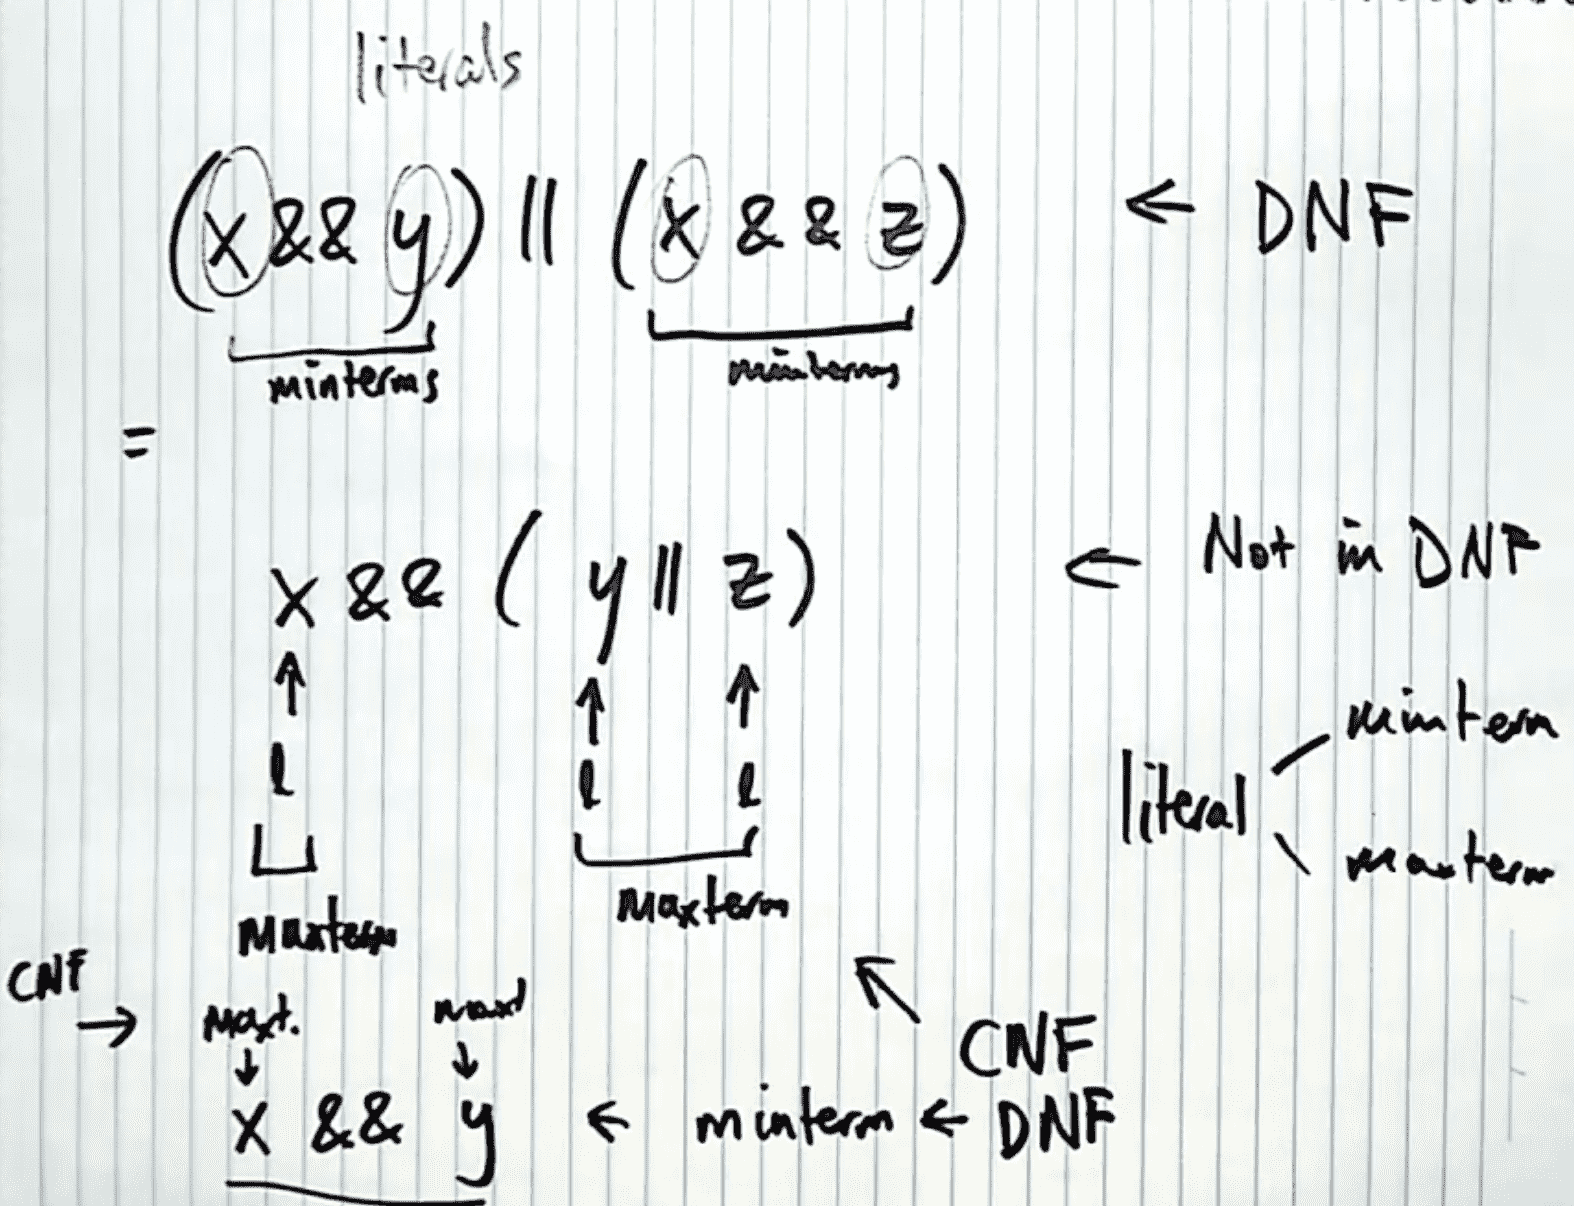 literals
(x && y) || (x && z) ← DNF
minterms minterms
=
x && ( y || z) ← Not in DNF
↑ ↑ ↑
l l l
literal minterm
maxterm
Maxterm Maxterm
CNF → Maxt. maxt
↓ ↓
CNF
x && y ← minterm ← DNF